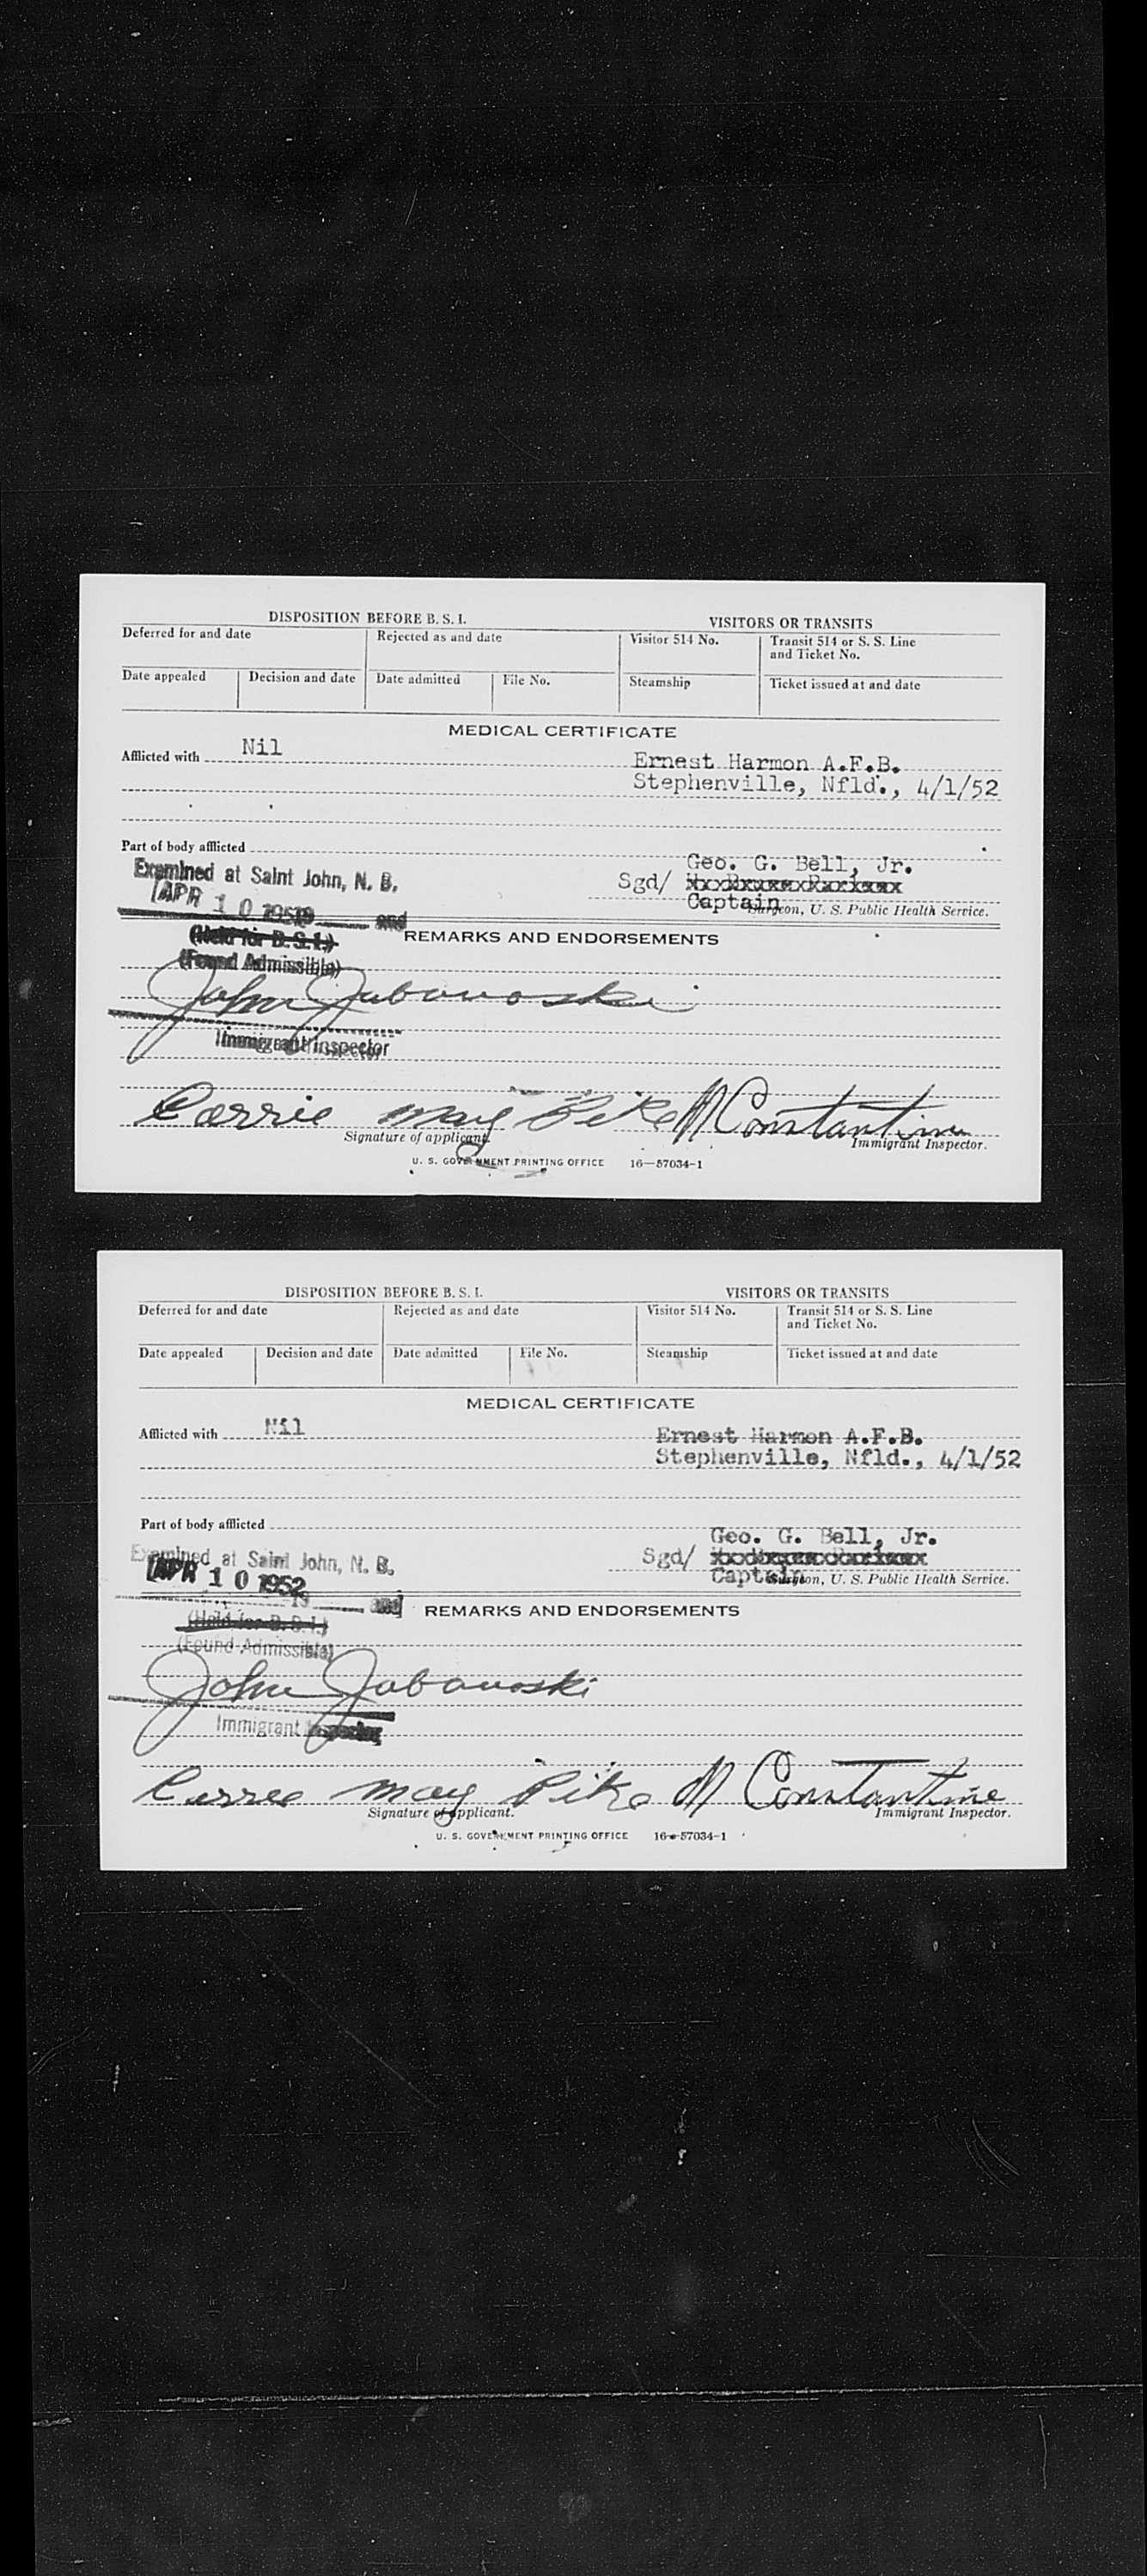 DISPOSITION BEFORE B. S. I.
VISITORS OR TRANSITS
Deferred for and date
Rejected as and date
Visitor 514 No.
Transit 514 or S. S. Line
and Ticket No.
Date appealed
Decision and date
Date admitted
File No.
Steamship
Ticket issued at and date
MEDICAL CERTIFICATE
Afflicted with Nil
Ernest Harmon A.F.B.
Stephenville, Nfld., 4/1/52
Part of body afflicted
Examined at Saint John, N. B.
APR 10 1952 and
(Held for B. S. I.)
(Found Admissible)
Geo. G. Bell, Jr.
Sgd/
Captain
Surgeon, U. S. Public Health Service.
REMARKS AND ENDORSEMENTS
John Jabanoski
Immigrant Inspector
Carrie May Pike
N Constantine
Signature of applicant.
Immigrant Inspector.
U. S. GOVERNMENT PRINTING OFFICE 16—57034-1
DISPOSITION BEFORE B. S. I.
VISITORS OR TRANSITS
Deferred for and date
Rejected as and date
Visitor 514 No.
Transit 514 or S. S. Line
and Ticket No.
Date appealed
Decision and date
Date admitted
File No.
Steamship
Ticket issued at and date
MEDICAL CERTIFICATE
Afflicted with Nil
Ernest Harmon A.F.B.
Stephenville, Nfld., 4/1/52
Part of body afflicted
Examined at Saint John, N. B.
APR 10 1952
19 and
(Held for B. S. I.)
(Found Admissible)
Geo. G. Bell, Jr.
Sgd/
Captain
Surgeon, U. S. Public Health Service.
REMARKS AND ENDORSEMENTS
John Jabanoski
Immigrant Inspector
Carrie May Pike
N Constantine
Signature of applicant.
Immigrant Inspector.
U. S. GOVERNMENT PRINTING OFFICE 16—57034-1